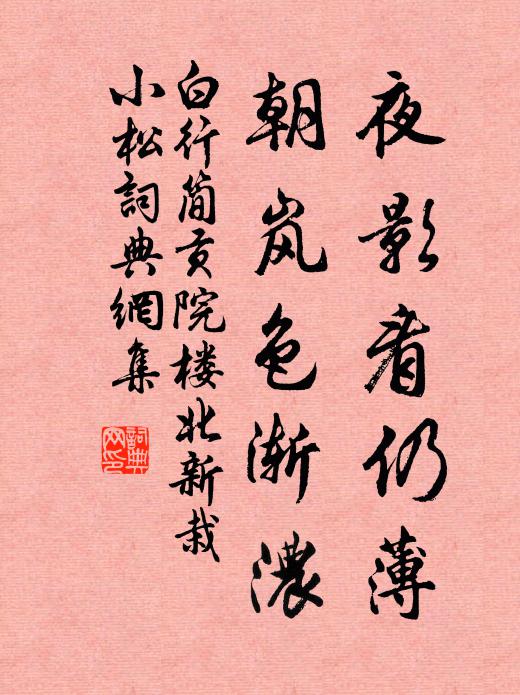 夜影看仍薄
朝岚色渐濃
白行简贡院楼北新栽
小松詞典網集
詞典网印